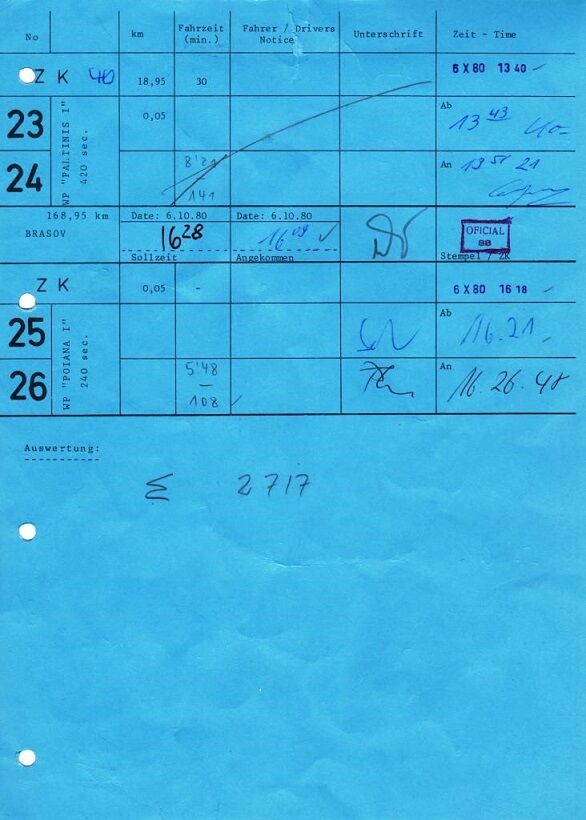 No km Fahrzeit (min.) Fahrer / Drivers Notice Unterschrift Zeit - Time
Z K 40 18,95 30 6 X 80 13 40
23 WP "PALTINIS I" 420 sec. 0,05 Ab 13 43
24 8'21 141 An 13 51 21
168,95 km Date: 6.10.80 Date: 6.10.80
BRASOV 16 28 16 09 OFICIAL 88
Sollzeit Angekommen Stempel / ZK
Z K 0,05 - 6 X 80 16 18
25 WP "POIANA I" 240 sec. Ab 16.21
26 5'48 — 108 An 16.26.48
Auswertung:
Σ 2717